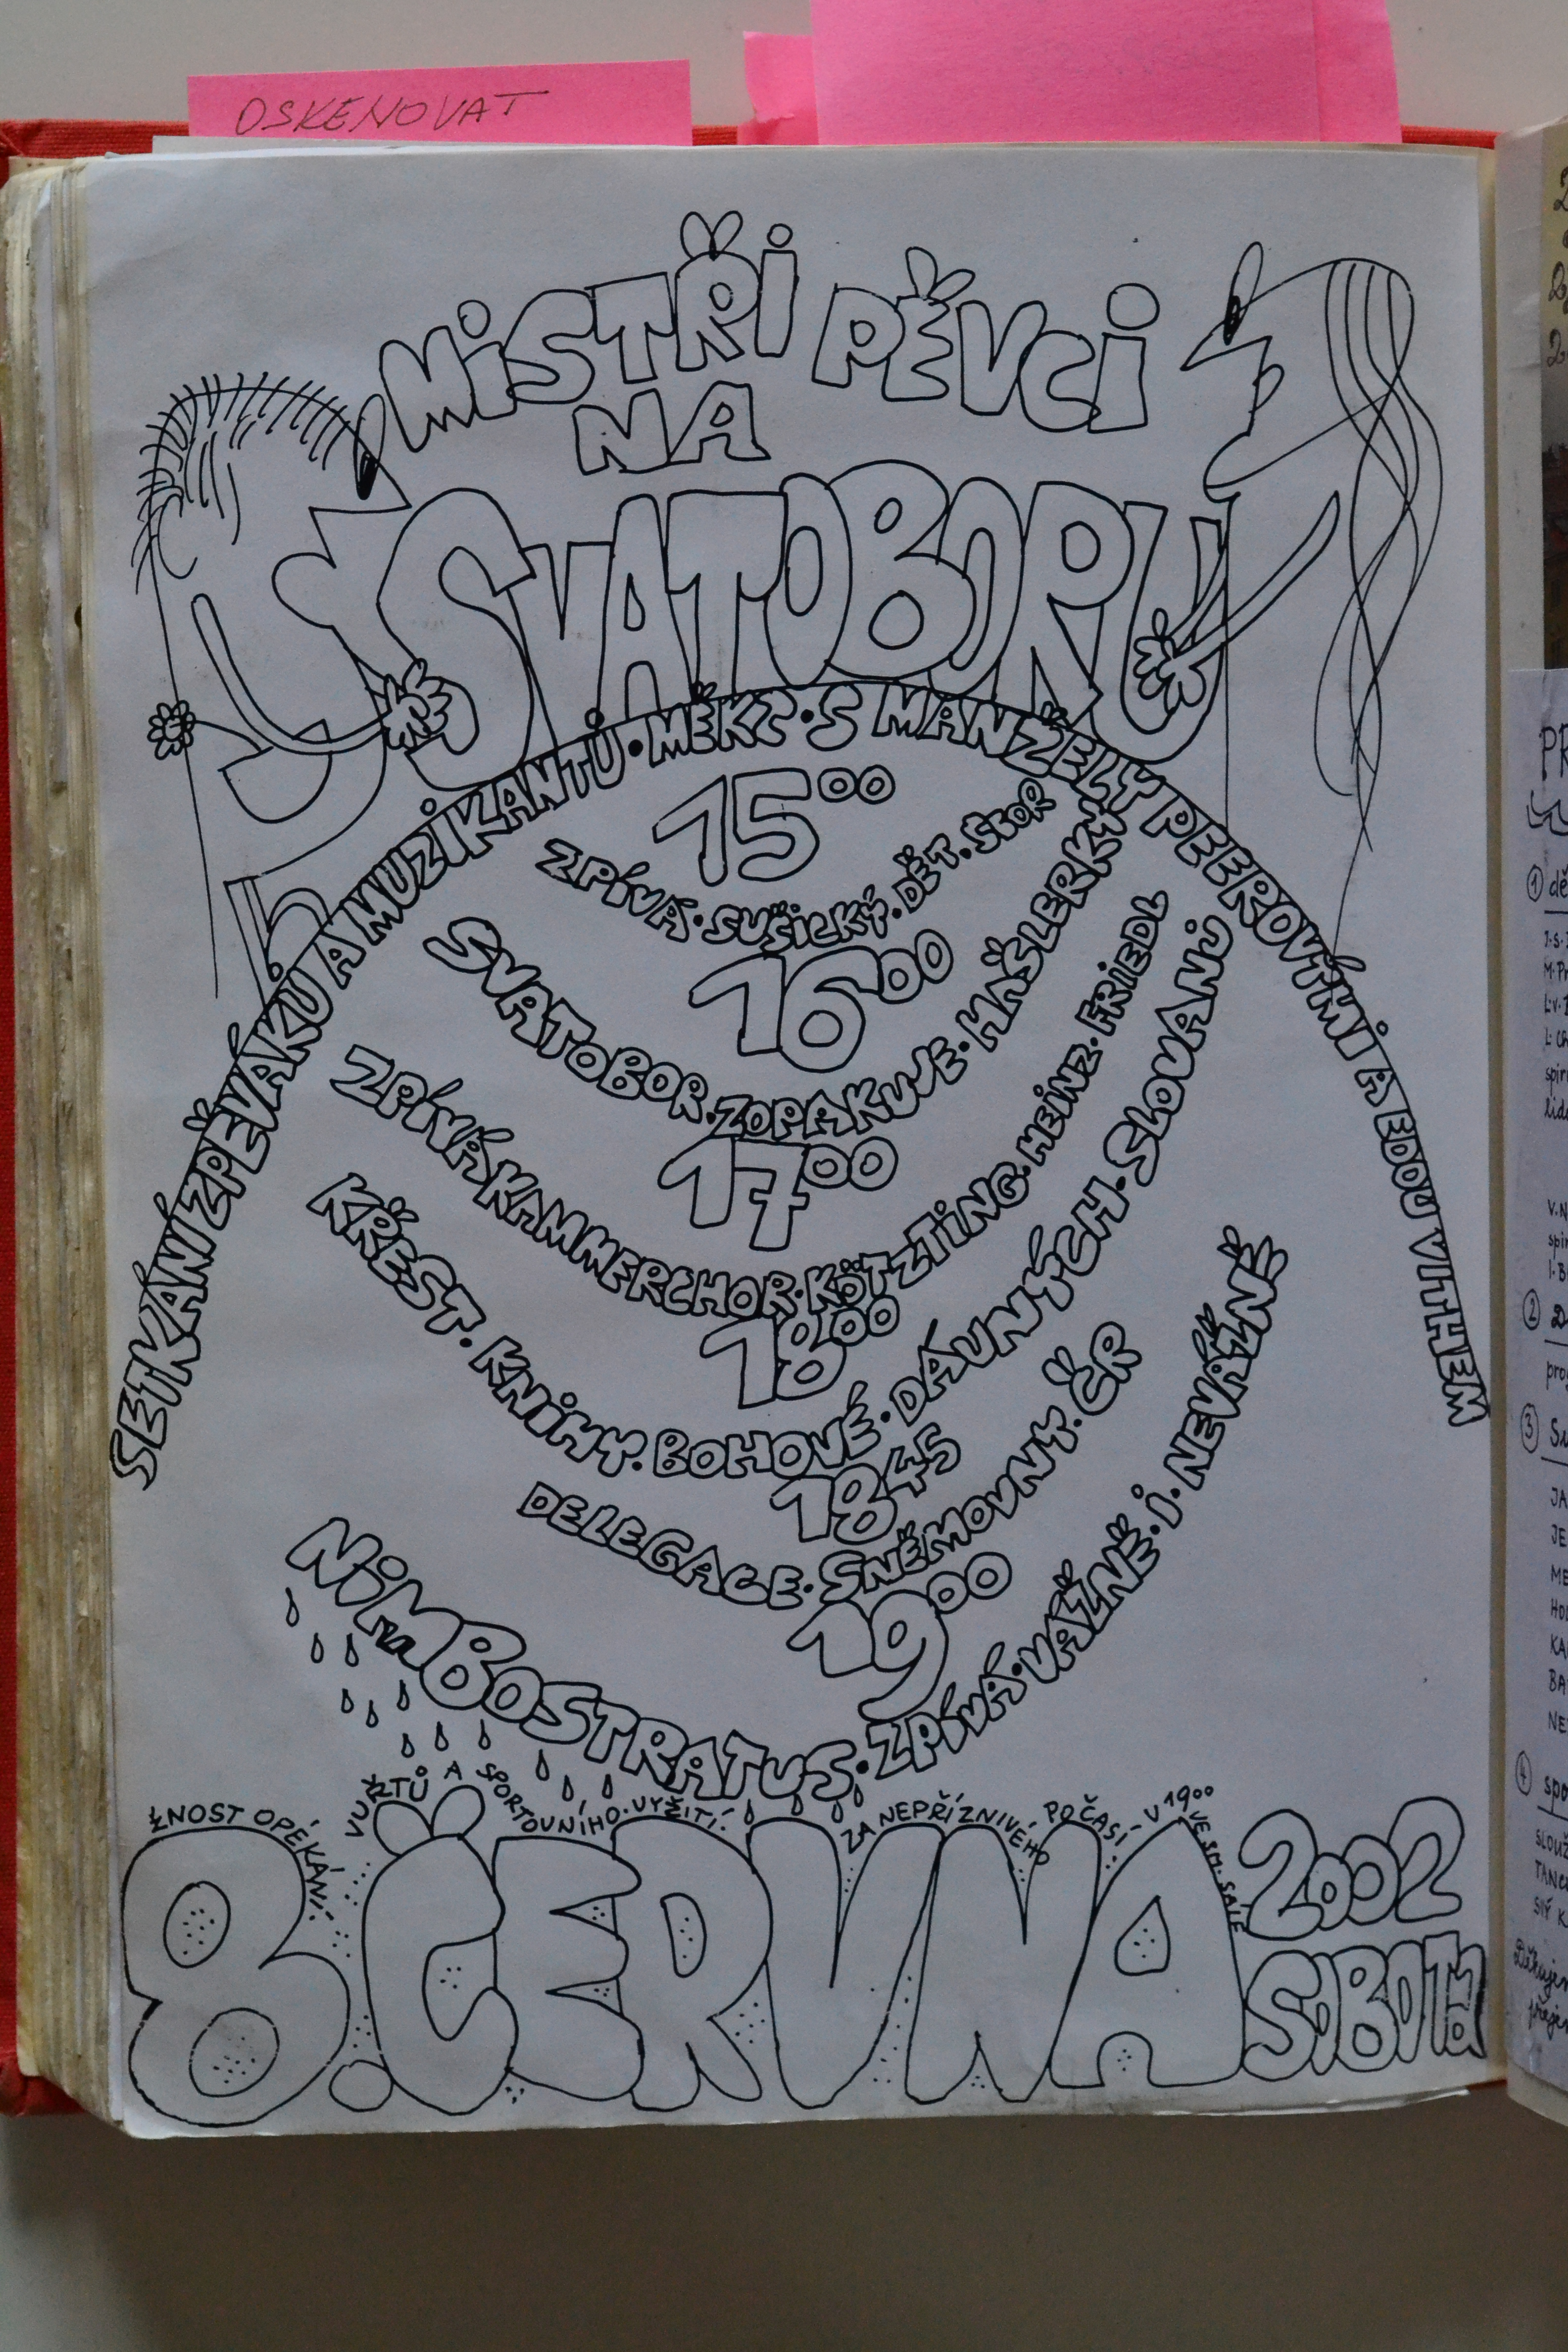 OSKENOVAT
MiSTŘi PĚVCi
NA
SVATOBORU
SETKÁNÍ ZPĚVÁKŮ A MUZIKANTŮ · MĚKT · S MANŽELY PEEROVÝMI A EDOU VITHEM
15⁰⁰
ZPÍVÁ · SUŠiCKÝ · DĚT. SBOR
16⁰⁰
SVATOBOR · ZOPAKUJE · HAŠLERKY
17⁰⁰
ZPÍVÁ KAMMERCHOR · KÖTZTiNG · HEiNZ · FRiEDL
18⁰⁰
KŘEST · KNiHY · BOHOVÉ · DÁVNÝCH · SLOVANŮ
18⁴⁵
DELEGACE · SNĚMOVNY · ČR
19⁰⁰
NiMBOSTRATUS · ZPÍVÁ · VÁŽNĚ · i · NEVÁŽNĚ
ŽNOST OPÉKÁNÍ VUŘTŮ A SPORTOVNÍHO · VYŽITÍ!
ZA NEPŘÍZNIVÉHO POČASÍ - V 19⁰⁰ VE SM. SÁLE
8. ČERVNA 2002
SOBOTA